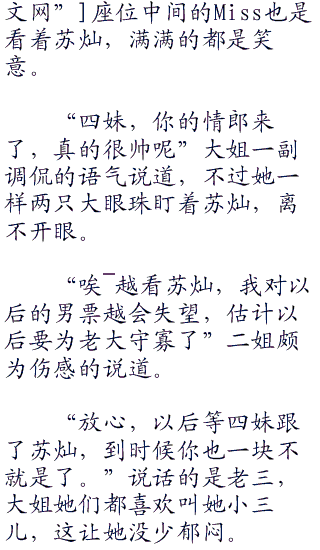 文网”]座位中间的Miss也是
看着苏灿，满满的都是笑
意。
“四妹，你的情郎来
了，真的很帅呢”大姐一副
调侃的语气说道，不过她一
样两只大眼珠盯着苏灿，离
不开眼。
“唉¯越看苏灿，我对以
后的男票越会失望，估计以
后要为老大守寡了”二姐颇
为伤感的说道。
“放心，以后等四妹跟
了苏灿，到时候你也一块不
就是了。”说话的是老三，
大姐她们都喜欢叫她小三
儿，这让她没少郁闷。